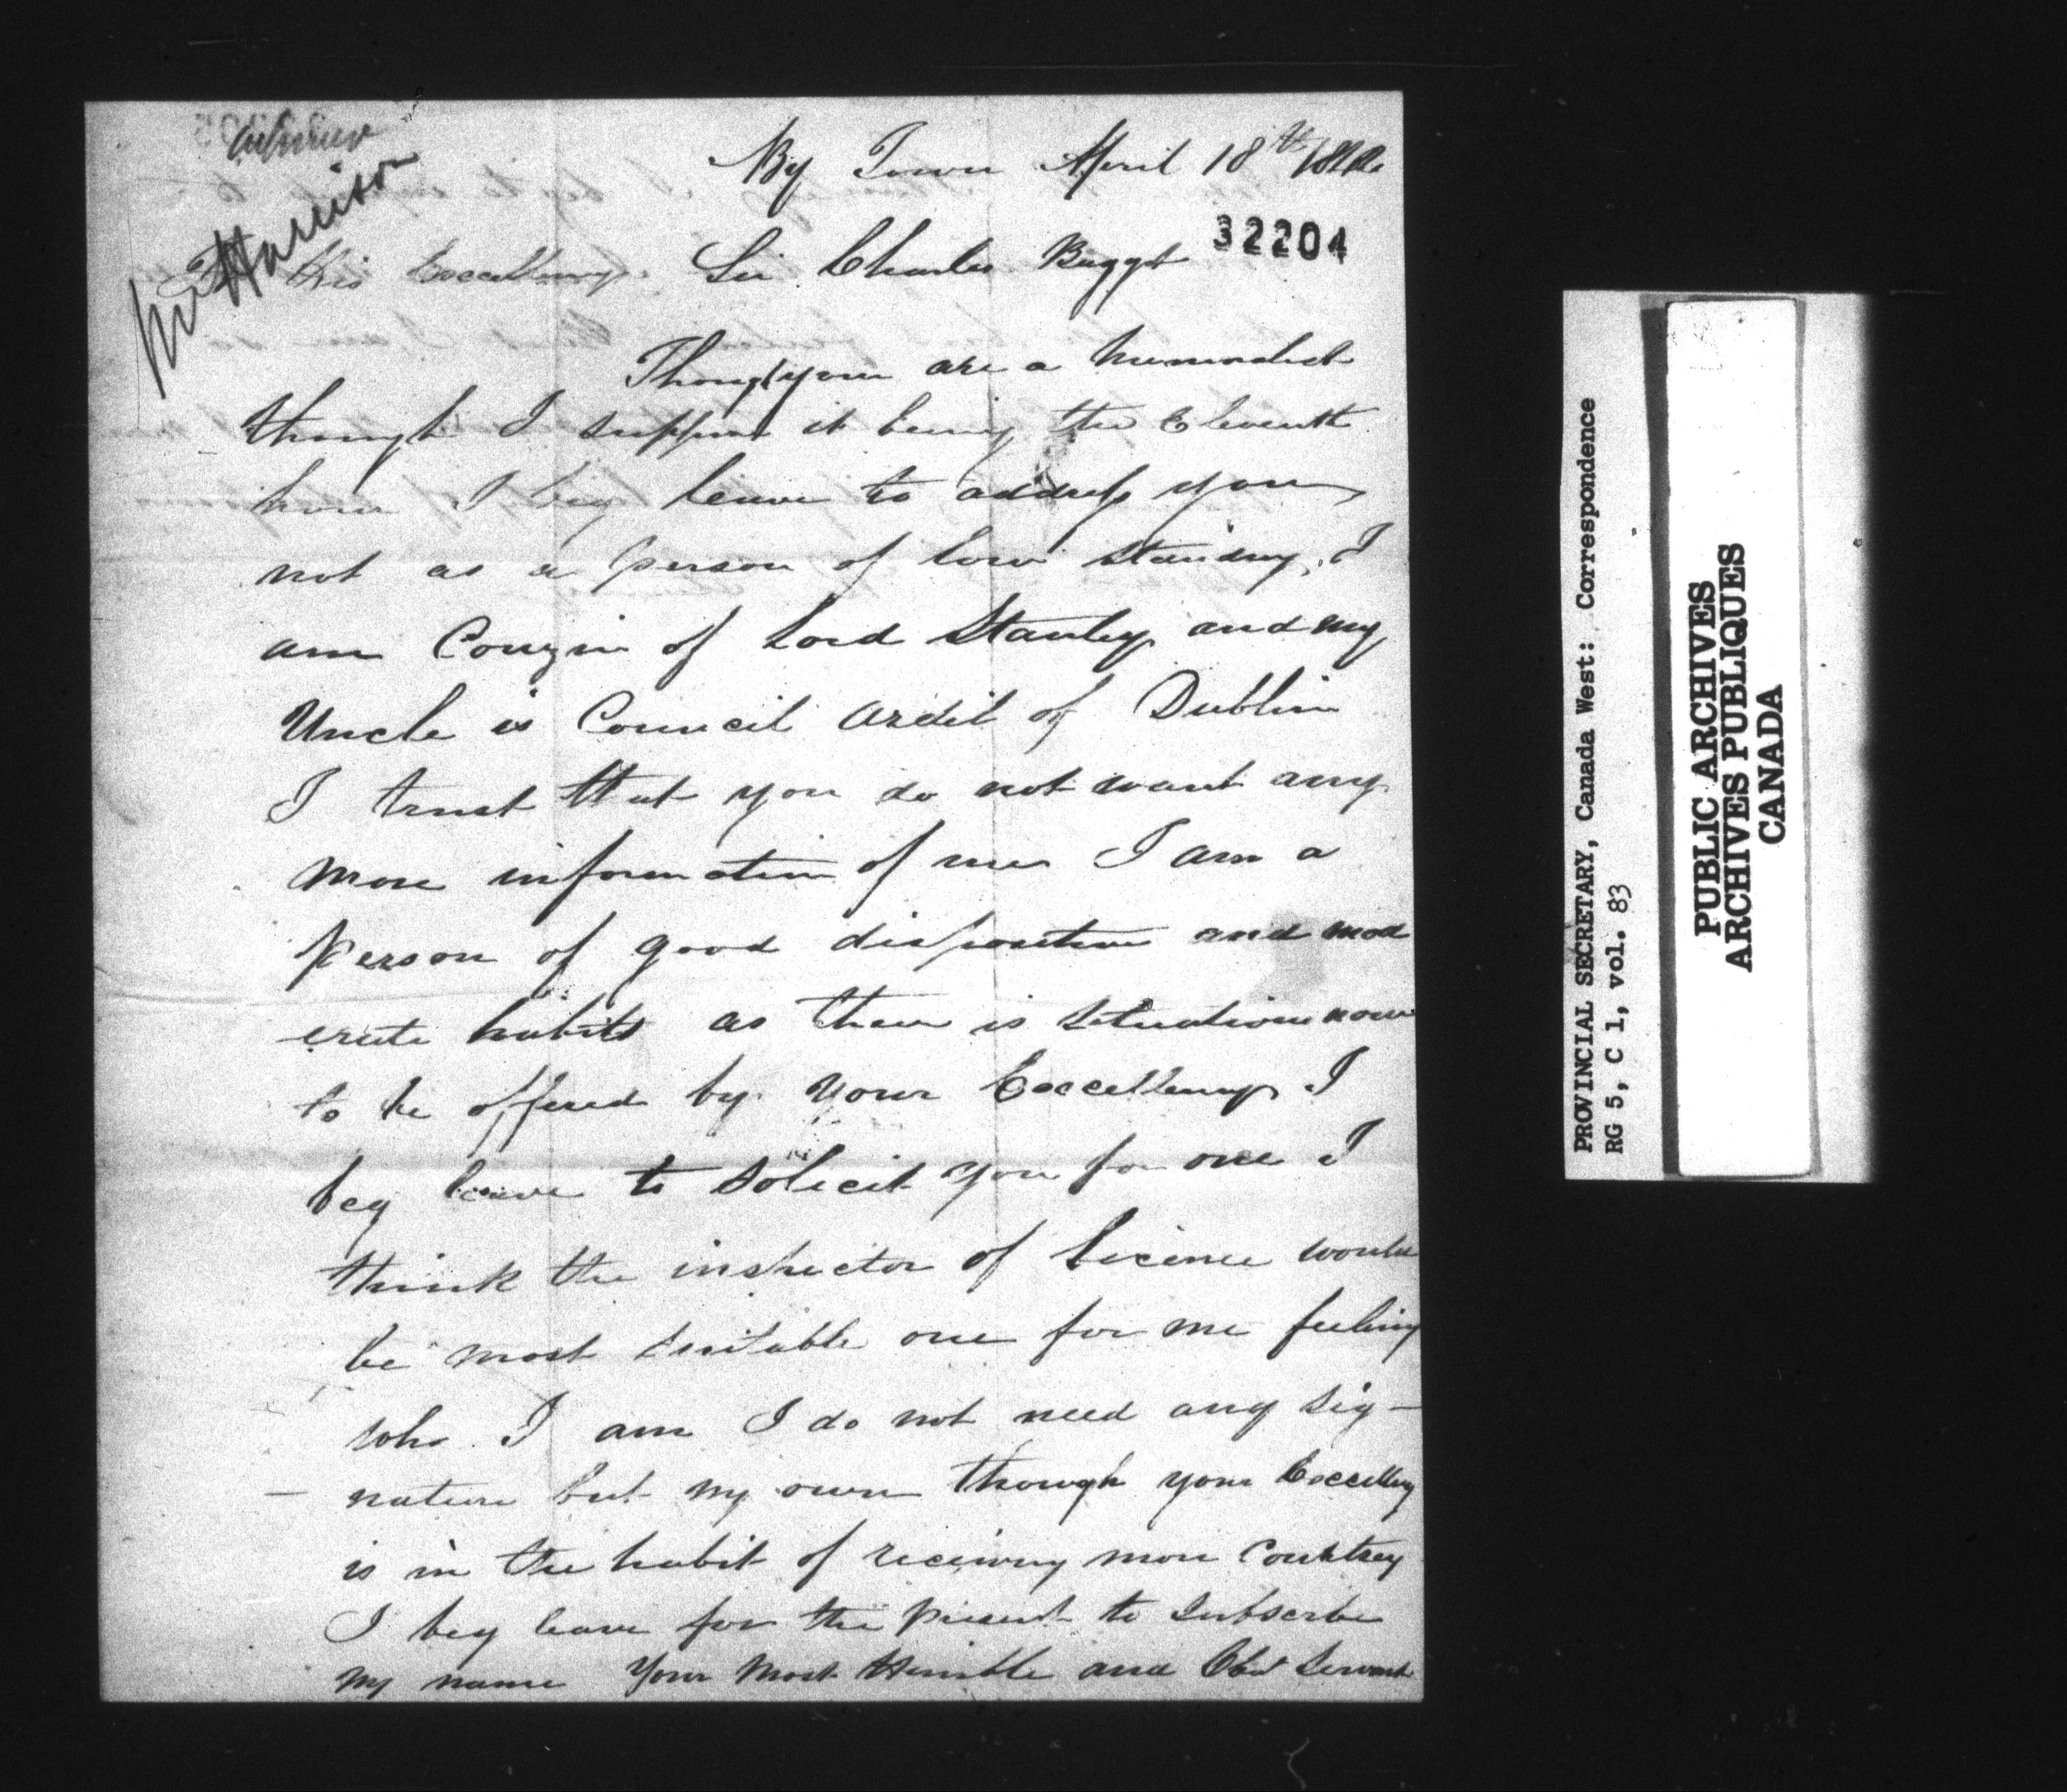 By Town April 18th 1842
Mr Harrison
32204
To His Excellency Sir Charles Baggot
Though you are a
though I suppose it being the Eleventh
hour I beg leave to address you
not as a person of low standing, I
am Couzin of Lord Stanley and my
Uncle is Council Ardil of Dublin
I trust that you do not want any
more information of me I am a
person of good disposition and mod
erate habits as there is situations now
to be offered by your Excellency I
beg leave to solicit you for one I
think the inspector of Licence would
be most suitable one for me feeling
who I am I do not need any sig-
- nature but my own though your Excellency
is in the habit of receiving more
I beg leave for the present to Subscribe
my name Your Most Humble and Obdt Servant
PROVINCIAL SECRETARY, Canada West: Correspondence
RG 5, C 1, vol. 83
PUBLIC ARCHIVES
ARCHIVES PUBLIQUES
CANADA